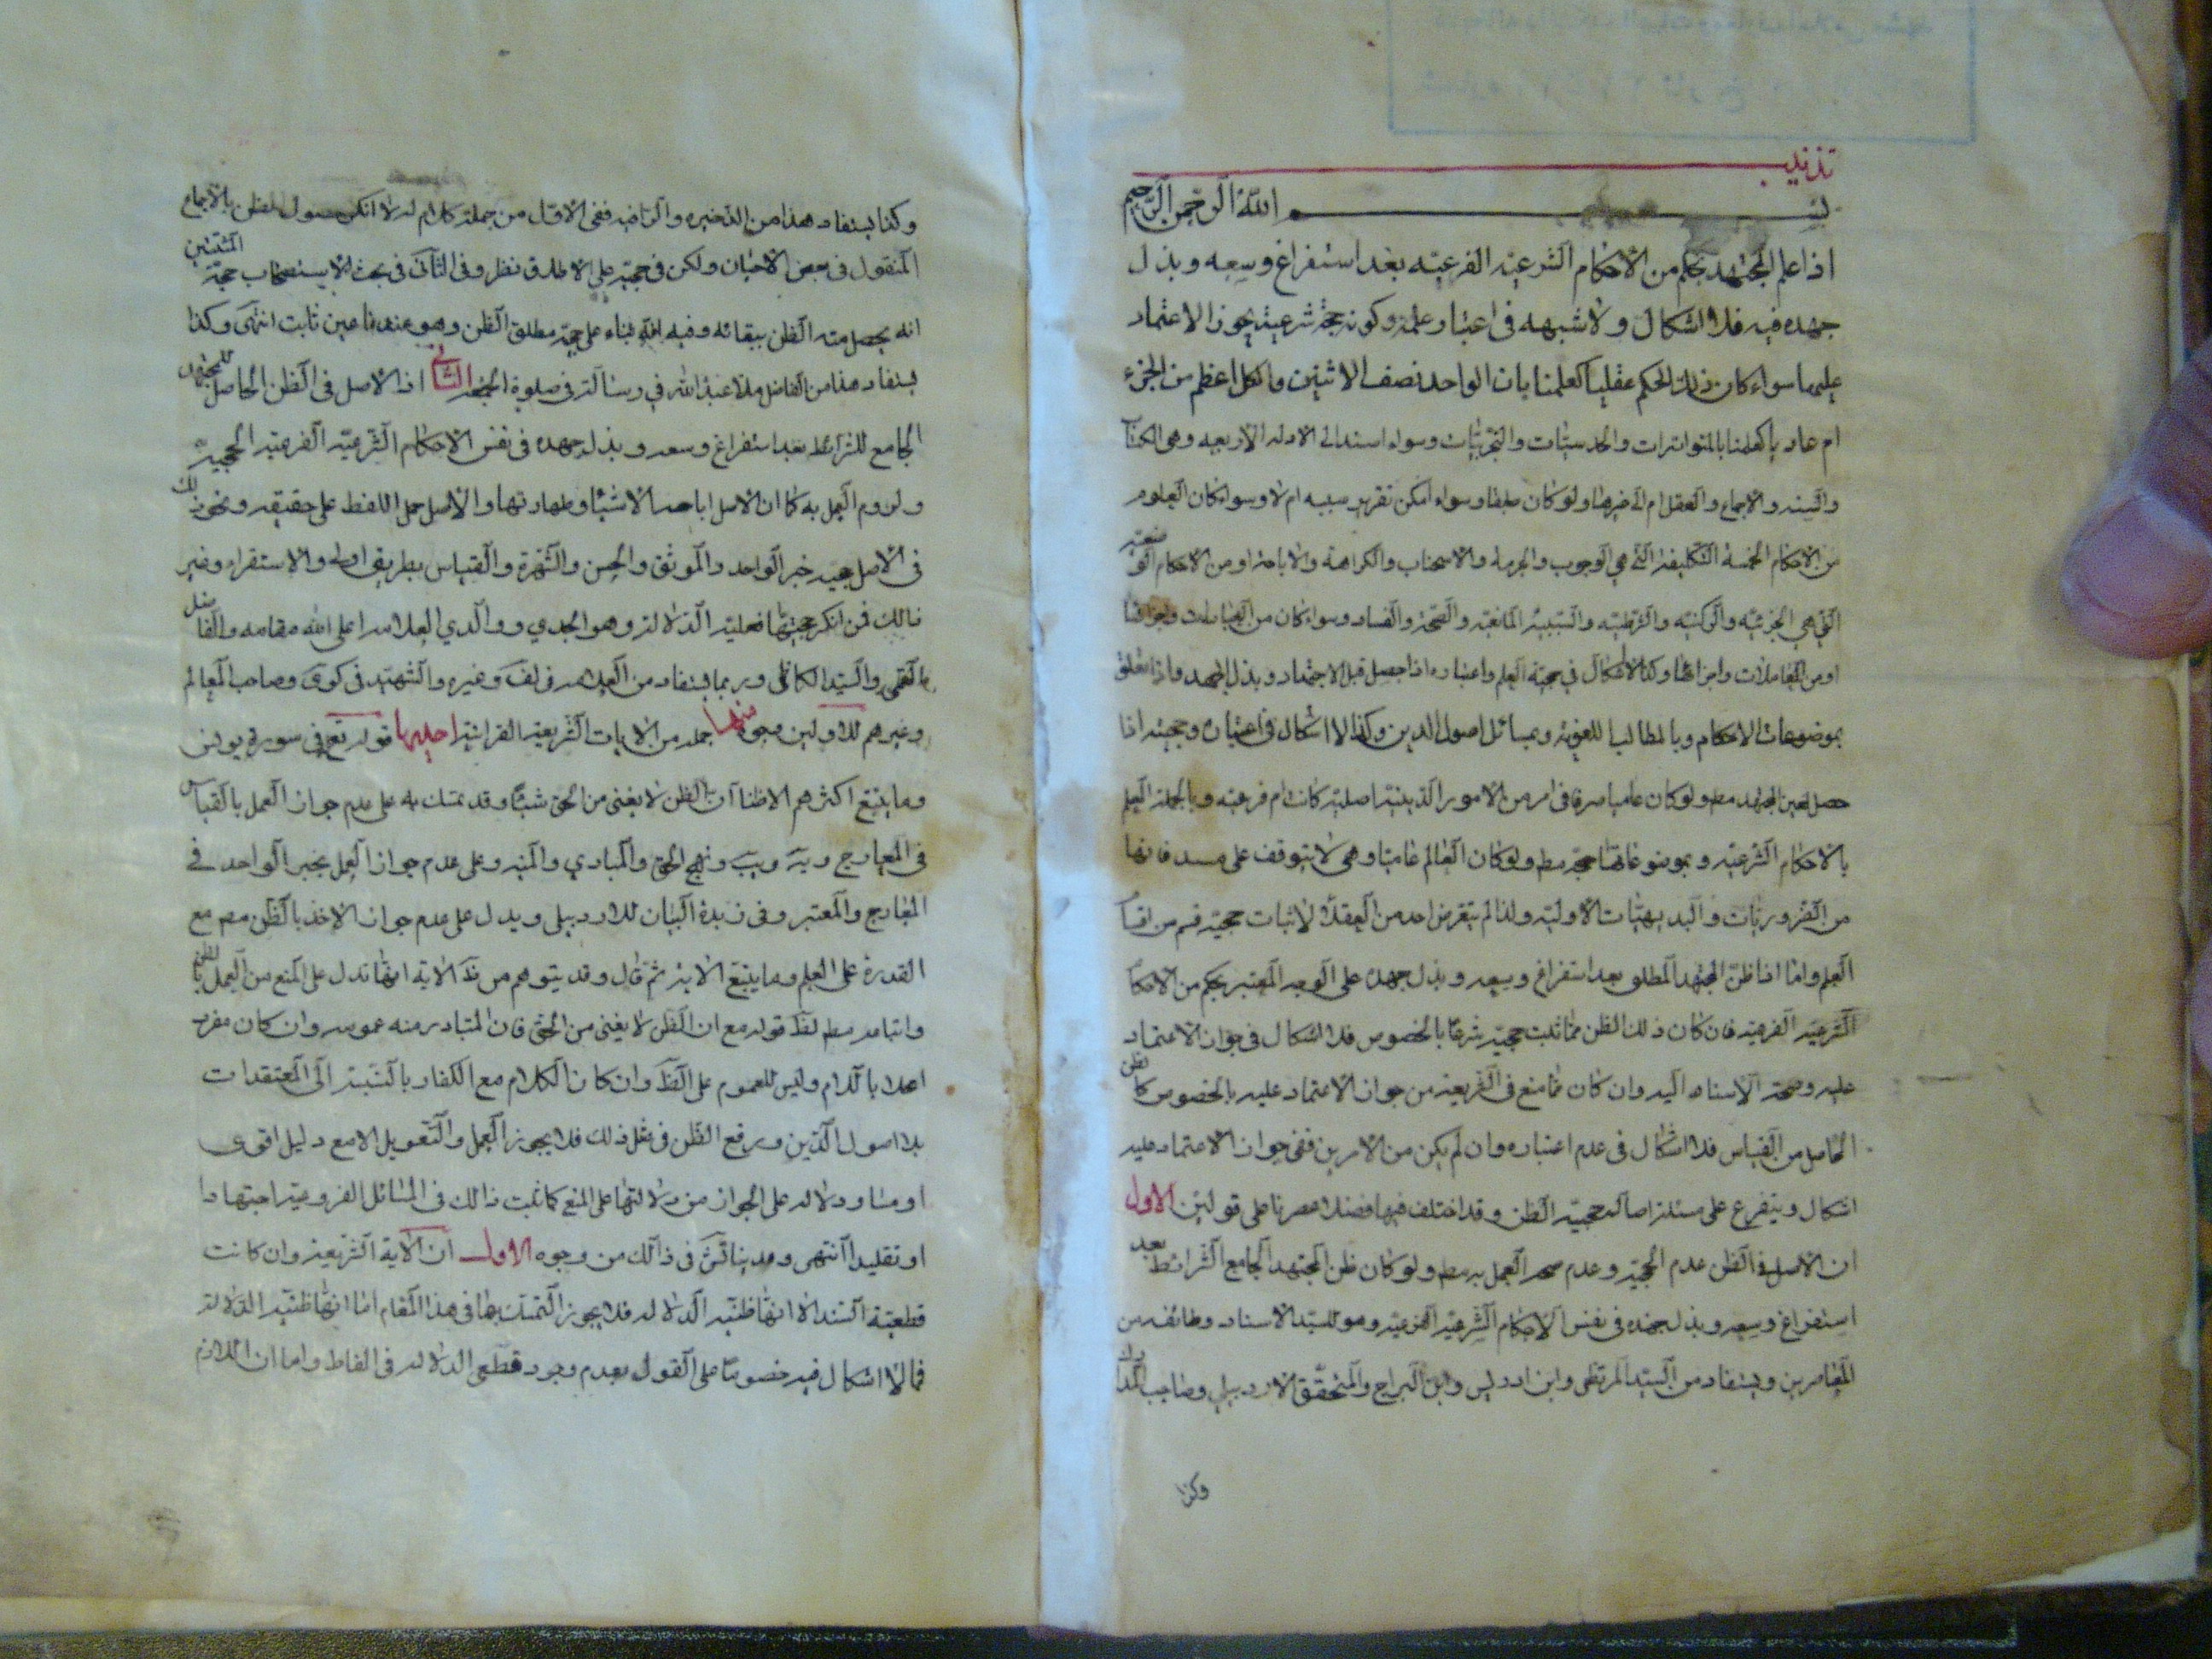 تذنيب
بسم الله الرحمن الرحيم
اذا علم المجتهد بحكم من الاحكام الشرعية الفرعية بعد استفراغ وسعه وبذل
جهده فيه فلا اشكال ولا شبهه فى اعتبار علمه وكونه حجة شرعية يجوز الاعتماد
عليها سواء كان ذلك الحكم عقليا كعلمنا بان الواحد نصف الاثنين والكل اعظم من الجزء
ام عاديا كعلمنا بالمتواترات والحدسيات والتجربيات وسواء استند الى الادله الاربعه وهى الكتاب
والسنه والاجماع والعقل ام الى غيرها ولو كان وسواء امكن تقرير سببه ام لا وسواء كان المعلوم
من الاحكام الخمسة التكليفية التى هي الوجوب والحرمة والاستحباب والكراهة والاباحة او من الاحكام الوضعيه
التي هي الجزئيه والركنيه والشرطيه والسببيه المانعيه والصحة والفساد وسواء كان من العبادات
او من المعاملات وكذا لا اشكال في حجية العلم واعتباره اذا حصل قبل الاجتهاد وبذل الجهد واذا تعلق
بموضوعات الاحكام وبالمطالب اللغويه وبمسائل اصول الدين وكذا لا اشكال فى اعتباره وحجيته اذا
حصل لغير المجتهد مطم ولو كان عاميا صرفا فى امر من الامور الدينية اصلية كانت ام فرعيه وبالجملة العلم
بالاحكام الشرعيه وبموضوعاتها حجة مطم ولو كان العالم عاميا وهى لا يتوقف على فانها
من الضروريات والبديهيات الاوليه ولذا لم يتعرض احد من العقلاء لاثبات حجية قسم من اقسام
العلم واما اذا ظن المجتهد المطلق بعد استفراغ وسعه وبذل جهده على الوجه المعتبر بحكم من الاحكام
الشرعيه الفرعيه فان كان ذلك الظن مما ثبت حجيته شرعا بالخصوص فلا اشكال فى جواز الاعتماد
عليه وصحة الاستناد اليه وان كان مما منع فى الشريعة من جواز الاعتماد عليه بالخصوص كالظن
الحاصل من القياس فلا اشكال فى عدم اعتباره وان لم يكن من الامرين ففى جواز الاعتماد عليه
اشكال ويتفرع على مسئلة اصالة حجية الظن وقد اختلف فيها فضلاء عصرنا على قولين الاول
ان الاصل فى الظن عدم الحجية وعدم صحة العمل به مطم ولو كان ظن المجتهد الجامع الشرائط بعد
استفراغ وسعه وبذل جهده فى نفس الاحكام الشرعيه الفرعيه وهو للسيد الاستاد وطائفه من
المعاصرين ويستفاد من السيد المرتضى وابن ادريس وابن البراج والمحقق الاردبيلي وصاحب المدارك
وكذا
وكذا يستفاد هذا من الذخيره والرياض ففى الاول من جملة كلام له لا انكر حصول الظن بالاجماع
المنقول فى بعض الاحيان ولكن فى حجيته على الاطلاق نظر وفى الثانى فى بحث الاستصحاب حجة المثبتين
انه يحصل منه الظن ببقائه وفيه انه بناء على حجية مطلق الظن وهو عندنا غير ثابت انتهى وكذا
يستفاد هذا من الفاضل ملا عبد الله في رسالة فى صلوة الجمعة الثانى ان الاصل فى الظن الحاصل للمجتهد
الجامع للشرائط بعد استفراغ وسعه وبذل جهده فى نفس الاحكام الشرعيه الفرعيه الحجية
ولزوم العمل به كما ان الاصل اباحة الاشياء وطهارتها والاصل حمل اللفظ على حقيقته ونحو ذلك
فى الاصل حجية خبر الواحد والموثق والحسن والشهرة والقياس بطريق اولى والاستقراء وغير
ذالك فمن انكر حجيتها فعليه الدلالة وهو لجدي ووالدي العلامه اعلى الله مقامه والفاضل
القمى والسيد الكاظمى وربما يستفاد من العلامه فى لف وغيره والشهيد فى كرى وصاحب المعالم
وغيرهم للاولين وجوه منها جملة من الايات الشريفة القرانية احديها قوله تع فى سورة يونس
وما يتبع اكثرهم الا ظنا ان الظن لا يغنى من الحق شيئا وقد تمسك به على عدم جواز العمل بالقياس
فى المعارج ويه ويب ونهج الحق والمبادي والمنيه وعلى عدم جواز العمل بخبر الواحد فى
المعارج والمعتبر وفى زبدة البيان للاردبيلى ويدل على عدم جواز الاخذ بالظن مطم مع
القدرة على العلم وما يتبع الاية ثم قال وقد يتوهم من هذه الاية انها تدل على المنع من العمل بالظن
واتباعه مطم لقوله مع ان الظن لا يغنى من الحق فان المتبادر منه عمومه وان كان مفردا
باللام وليس للعموم على الظ وان كان الكلام مع الكفار بالنسبة الى المعتقدات
بل اصول الدين ورفع الظن فى مثل ذلك فلا يجوز العمل والتعويل الا مع دليل اقوى
او مساو دلاله على الجواز من دلالتها على المنع كما ثبت ذالك فى المسائل الفروعية اجتهادا
او تقليدا انتهى وقد يناقش فى ذالك من وجوه الاول ان الاية الشريفة وان كانت
قطعية السند الا انها ظنية الدلاله فلا يجوز التمسك بها فى هذا المقام اما انها ظنية الدلالة
فما لا اشكال فيه خصوصا على القول بعدم وجود قطعى الدلاله فى الفاظ واما ان اللازم